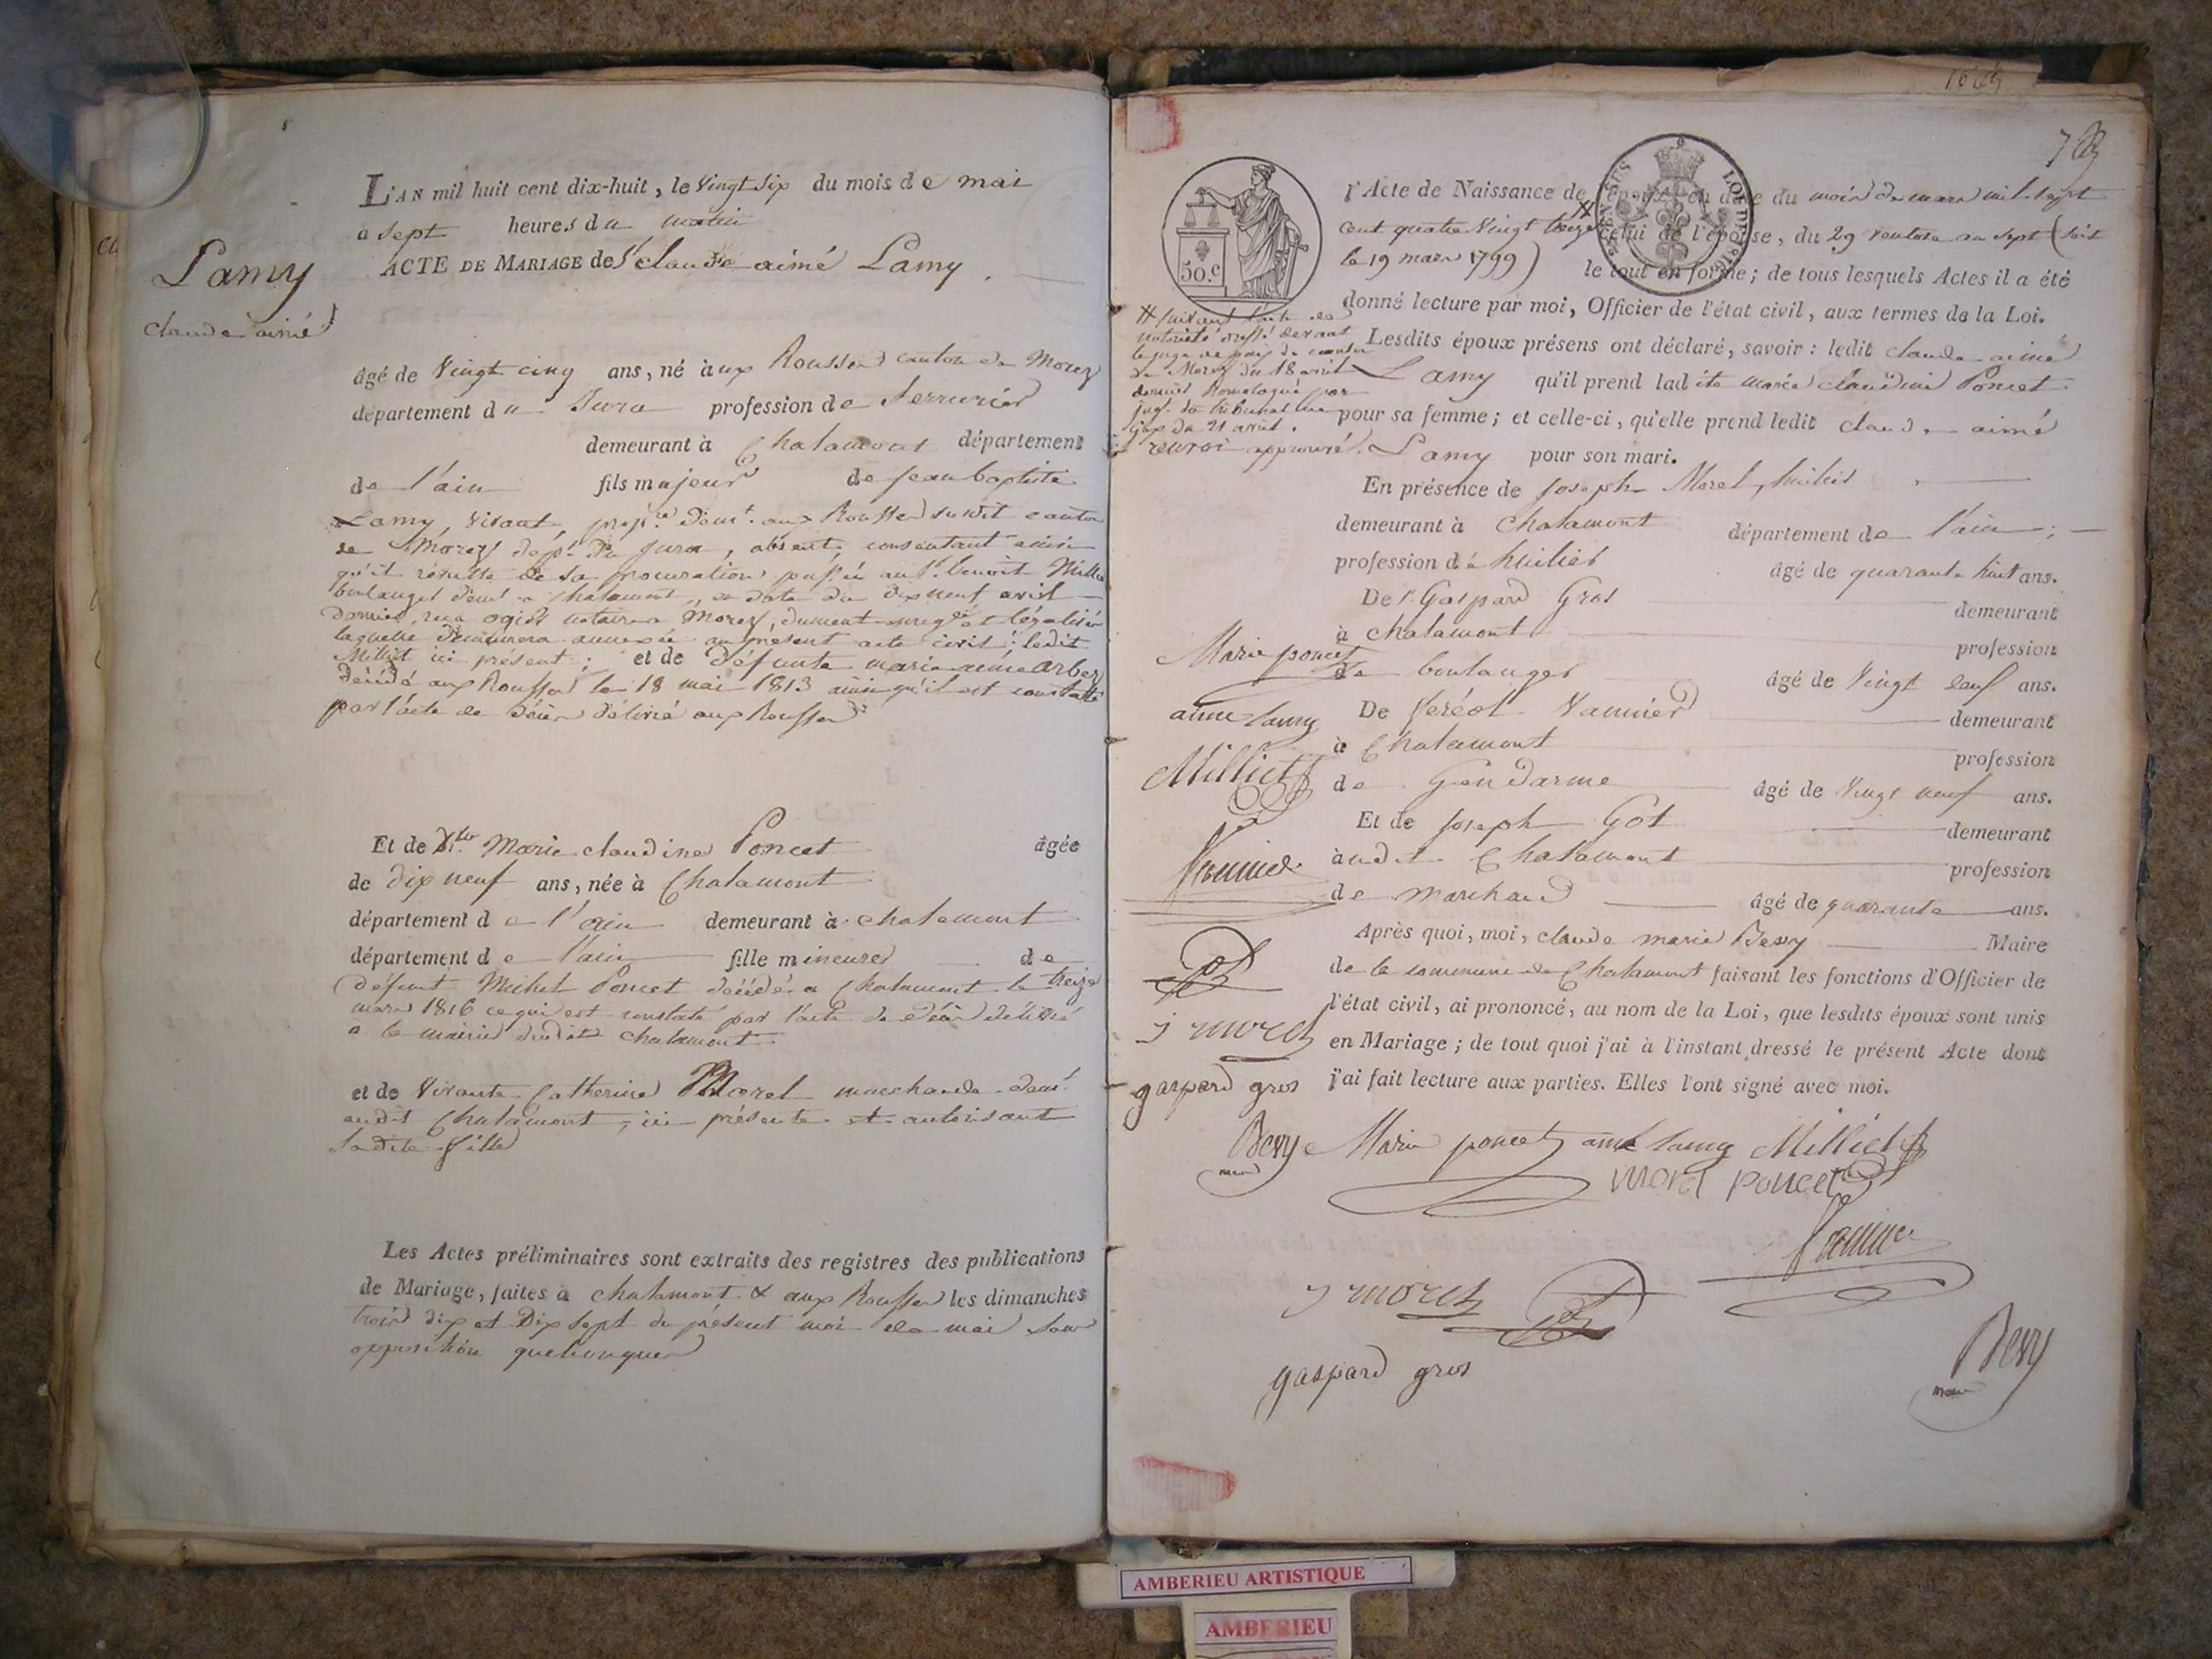 L'AN mil huit cent dix-huit, le Vingt Six du mois de mai
a sept heures du matin
ACTE DE MARIAGE de Sr. claude aimé Lamy.
Lamy
claude aimé
agé de Vingt cinq ans, né à ux Rousses canton de Morez
département du Jura profession de Serrurier
demeurant à Chalamont département
de l'ain fils majeur de jean baptiste
Lamy, vivant, propre. demt. aux Rousses susdit canton
de Morez dépt. du jura, absent, consentant ainsi
qu'il résulte de sa procuration passée au Sr. benoit Milliet
boulanger demt. a chalamont, en date du dix neuf avril
dernier, reçu notaire a Morez, dument enregé. et légalisée
laquelle demeurera annexée au present acte civil; ledit
Milliet ici présent; et de défunte marie anne arbez
décédé aux Rousses le 18 mai 1813 ainsi qu'il est constaté
par l'acte de décès délivré aux Rousses
Et de Dlle. Marie claudine Poncet agée
de dix neuf ans, née à Chalamont
département de l'ain demeurant à chalamont
département de l'ain fille mineure de
défunt Michel Poncet décédé a Chalamont le treize
mars 1816 ce qui est constaté par l'acte de décès délivré
a la mairie dudit chalamont
et de Vivante Catherine Morel marchande demt.
audit Chalamont, ici présente et autorisant
sadite fille
Les Actes préliminaires sont extraits des registres des publications
de Mariage, faites à chalamont & aux Rousses les dimanches
trois dix et Dix sept du présent mois de mai sans
opposition quelconque
l'Acte de Naissance de l'époux en date du mois de mars mil sept
cent quatre Vingt treize # celui de l'épouse, du 29 ventose an sept (soit
le 19 mars 1799) le tout en forme; de tous lesquels Actes il a été
donné lecture par moi, Officier de l'état civil, aux termes de la Loi.
50.c
# suivant l'acte de
notorieté dressé devant
le juge de paix du canton
de Morez du 18 avril
dernier homologué par
jugt. du tribunal de
du 21 avril.
renvoi approuvé.
Lesdits époux présens ont déclaré, savoir: ledit claude aimé
Lamy qu'il prend ladite marie claudine Poncet
pour sa femme; et celle-ci, qu'elle prend ledit claude aimé
Lamy pour son mari.
En présence de joseph Morel, huilier
demeurant à Chalamont département de l'ain;
profession de huilier agé de quarante huit ans.
De Sr. Gaspard Gros demeurant
à chalamont profession
de boulanger agé de Vingt neuf ans.
De feréol Vannier demeurant
à Chalamont profession
de Gendarme agé de Vingt neuf ans.
Et de joseph Got demeurant
audit Chalamont profession
de marchand agé de quarante ans.
Après quoi, moi, claude marie Bevy Maire
de la commune de Chalamont faisant les fonctions d'Officier de
l'état civil, ai prononcé, au nom de la Loi, que lesdits époux sont unis
en Mariage; de tout quoi j'ai à l'instant dressé le présent Acte dont
j'ai fait lecture aux parties. Elles l'ont signé avec moi.
Marie poncet
aime lamy
Milliet
Vannier
j morel
gaspard gros
Bevy Marie poncet aimé lamy Milliet
maire
morel poncet
Vannier
j morel
gaspard gros
Bevy
maire
AMBERIEU ARTISTIQUE
AMBERIEU